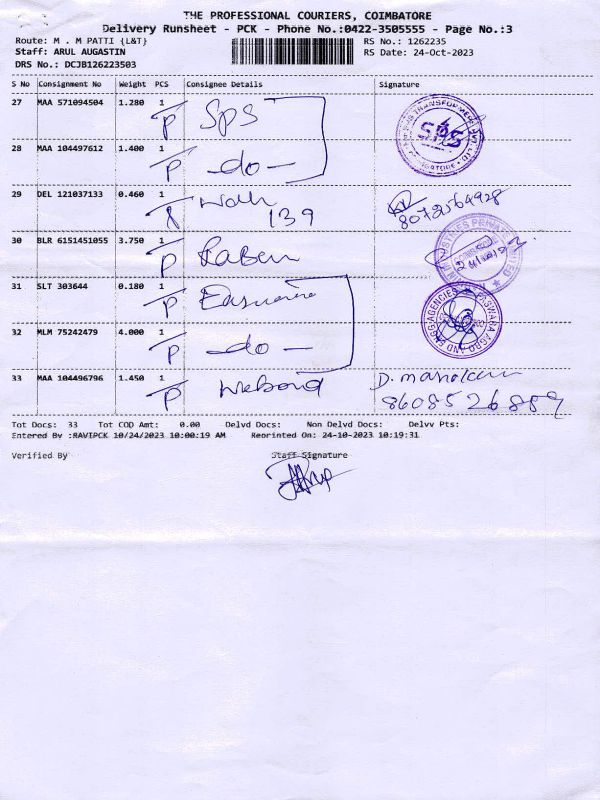 THE PROFESSIONAL COURIERS, COIMBATORE
Delivery Runsheet - PCK - Phone No.:0422-3505555 - Page No.:3
Route: M . M PATTI {L&T} RS No.: 1262235
Staff: ARUL AUGASTIN RS Date: 24-Oct-2023
DRS No.: DCJB126223503
S No Consignment No Weight PCS Consignee Details Signature
27 MAA 571094504 1.280 1 P Sps
28 MAA 104497612 1.400 1 P -do-
SPS
29 DEL 121037133 0.460 1
139 8072564928
30 BLR 6151451055 3.750 1 P
31 SLT 303644 0.180 1 P
32 MLM 75242479 4.000 1 P -do-
AGRO AND ENGG AGENCIES
33 MAA 104496796 1.450 1 P D. manoj
8608526889
Tot Docs: 33 Tot COD Amt: 0.00 Delvd Docs: Non Delvd Docs: Delvv Pts:
Entered By :RAVIPCK 10/24/2023 10:00:19 AM Reprinted On: 24-10-2023 10:19:31
Verified By Staff Signature